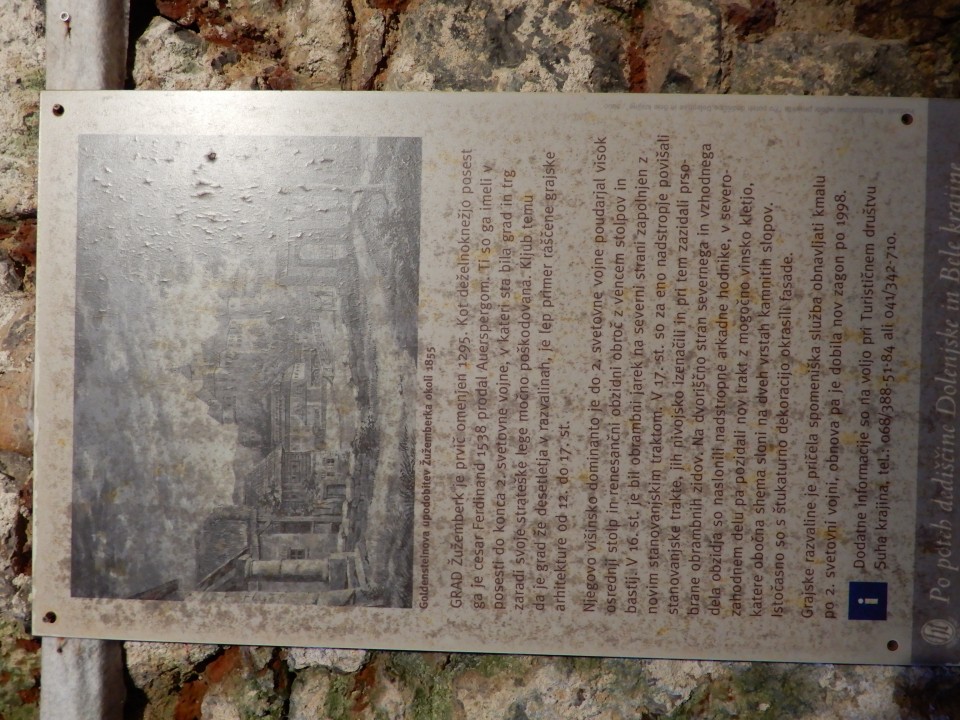 Goldensteinova upodobitev Žužemberka okoli 1855
GRAD Žužemberk je prvič omenjen 1295. Kot deželnoknežjo posest
ga je cesar Ferdinand 1538 prodal Auerspergom. Ti so ga imeli v
posesti do konca 2. svetovne vojne, v kateri sta bila grad in trg
zaradi svoje strateške lege močno poškodovana. Kljub temu
da je grad že desetletja v razvalinah, je lep primer raščene grajske
arhitekture od 12. do 17. st.
Njegovo višinsko dominanto je do 2. svetovne vojne poudarjal visok
osrednji stolp in renesančni obzidni obroč z vencem stolpov in
bastij. V 16. st. je bil obrambni jarek na severni strani zapolnjen z
novim stanovanjskim traktom. V 17. st. so za eno nadstropje povišali
stanovanjske trakte, jih nivojsko izenačili in pri tem zazidali prso-
brane obrambnih zidov. Na dvoriščno stran severnega in vzhodnega
dela obzidja so naslonili nadstropne arkadne hodnike, v severo-
zahodnem delu pa pozidali nov trakt z mogočno vinsko kletjo,
katere obočna shema sloni na dveh vrstah kamnitih slopov.
Istočasno so s štukaturno dekoracijo okrasili fasade.
Grajske razvaline je pričela spomeniška služba obnavljati kmalu
po 2. svetovni vojni, obnova pa je dobila nov zagon po 1998.
i
Dodatne informacije so na voljo pri Turističnem društvu
Suha krajina, tel.: 068/388-51-84 ali 041/342-710.
Po poteh dediščine Dolenjske in Bele krajine